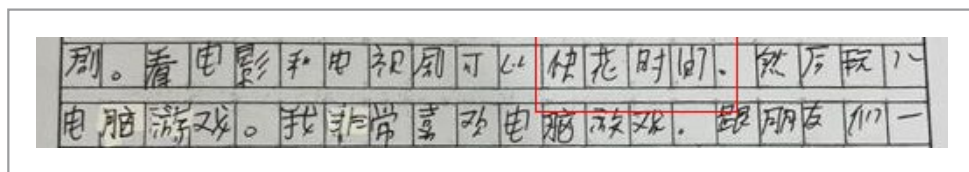 剧。看电影和电视剧可以快花时间.然后玩儿
电脑游戏。我非常喜欢电脑游戏.跟朋友们一